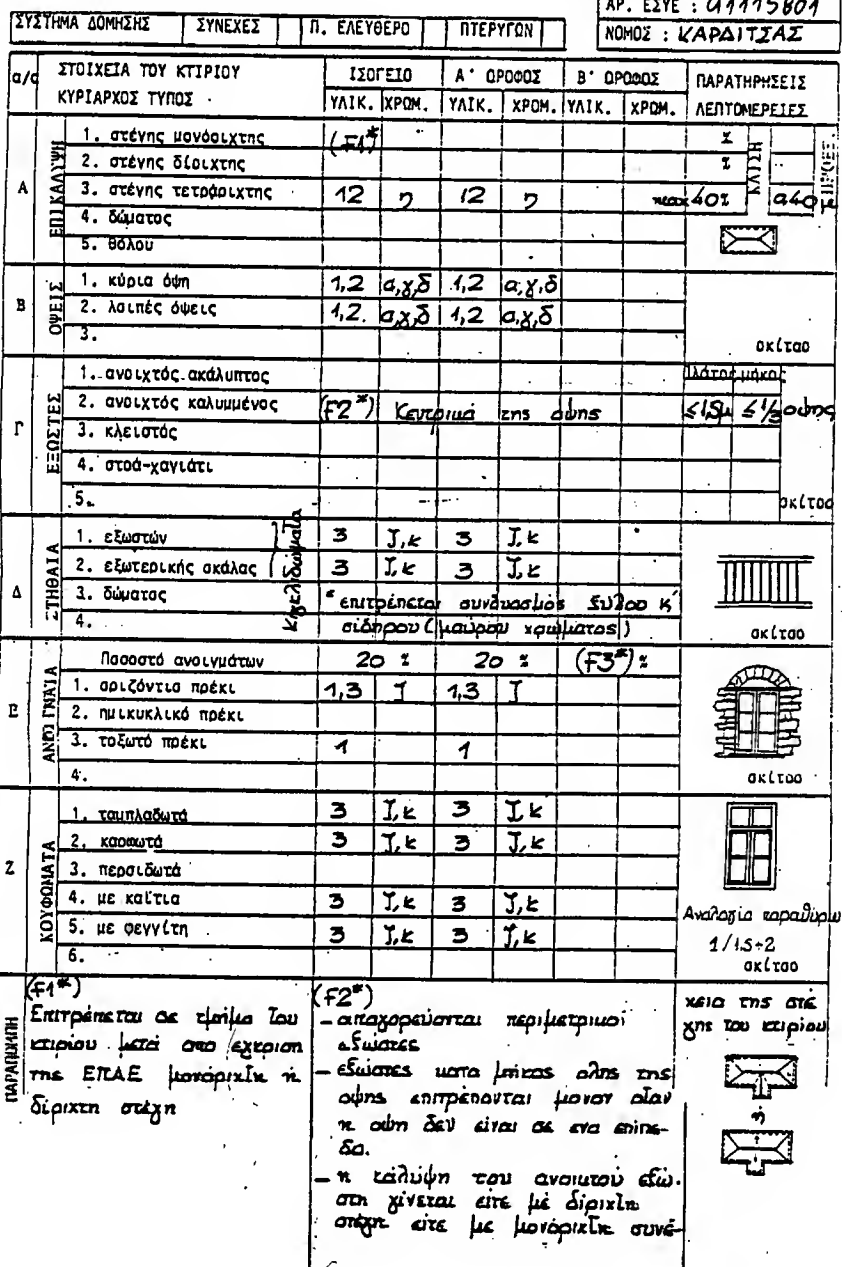 ΑΡ. ΕΣΥΕ : 01115801
ΣΥΣΤΗΜΑ ΔΟΜΗΣΗΣ ΣΥΝΕΧΕΣ Π. ΕΛΕΥΘΕΡΟ ΠΤΕΡΥΓΩΝ
ΝΟΜΟΣ : ΚΑΡΔΙΤΣΑΣ
α/α ΣΤΟΙΧΕΙΑ ΤΟΥ ΚΤΙΡΙΟΥ ΙΣΟΓΕΙΟ Α' ΟΡΟΦΟΣ Β' ΟΡΟΦΟΣ ΠΑΡΑΤΗΡΗΣΕΙΣ
ΚΥΡΙΑΡΧΟΣ ΤΥΠΟΣ ΥΛΙΚ. ΧΡΩΜ. ΥΛΙΚ. ΧΡΩΜ. ΥΛΙΚ. ΧΡΩΜ. ΛΕΠΤΟΜΕΡΕΙΕΣ
Α ΕΠΙΚΑΛΥΨΗ
1. στέγης μονόριχτης (F1*) % ΚΛΙΣΗ ΠΡΟΕΞ.
2. στέγης δίριχτης %
3. στέγης τετράριχτης 12 η 12 η max 40% 0.40 μ
4. δώματος
5. θόλου
Β ΟΨΕΙΣ
1. κύρια όψη 1,2 α,γ,δ 1,2 α,γ,δ
2. λοιπές όψεις 1,2. α,γ,δ 1,2 α,γ,δ
3.
σκίτσο
Γ ΕΞΩΣΤΕΣ
1. ανοιχτός ακάλυπτος Πλάτος μήκος
2. ανοιχτός καλυμμένος (F2*) Κεντρικά της όψης ≤1,5μ ≤1/3 όψης
3. κλειστός
4. στοά-χαγιάτι
5. σκίτσο
Δ ΣΤΗΘΑΙΑ κιγκλιδώματα
1. εξωστών 3 Ι,κ 3 Ι,κ
2. εξωτερικής σκάλας 3 Ι,κ 3 Ι,κ
3. δώματος * επιτρέπεται συνδυασμός ξύλου κ'
4. σιδήρου (μαύρου χρώματος)
σκίτσο
Ε ΑΝΟΙΓΜΑΤΑ
Ποσοστό ανοιγμάτων 20 % 20 % (F3*) %
1. οριζόντιο πρέκι 1,3 Ι 1,3 Ι
2. ημικυκλικό πρέκι
3. τοξωτό πρέκι 1 1
4.
σκίτσο
Ζ ΚΟΥΦΩΜΑΤΑ
1. ταμπλαδωτά 3 Ι,κ 3 Ι κ
2. καρφωτά 3 Ι,κ 3 Ι,κ
3. περσιδωτά
4. με καΐτια 3 Ι,κ 3 Ι,κ
5. με φεγγίτη 3 Ι,κ 3 Ι,κ
6.
Αναλογία παραθύρων
1/1.5÷2
σκίτσο
ΠΑΡΑΠΟΜΠΗ
(F1*)
Επιτρέπεται σε τμήμα του
κτιρίου μετά από έγκριση
της ΕΠΑΕ μονόριχτη ή
δίριχτη στέγη
(F2*)
- απαγορεύονται περιμετρικοί
εξώστες
- εξώστες κατά μήκος όλης της
όψης επιτρέπονται μόνον όταν
η όψη δεν είναι σε ένα επίπε-
δο.
- η κάλυψη του ανοικτού εξώ-
στη γίνεται είτε με δίριχτη
στέγη είτε με μονόριχτη συνέ-
χεια της στέ
γης του κτιρίου
ή